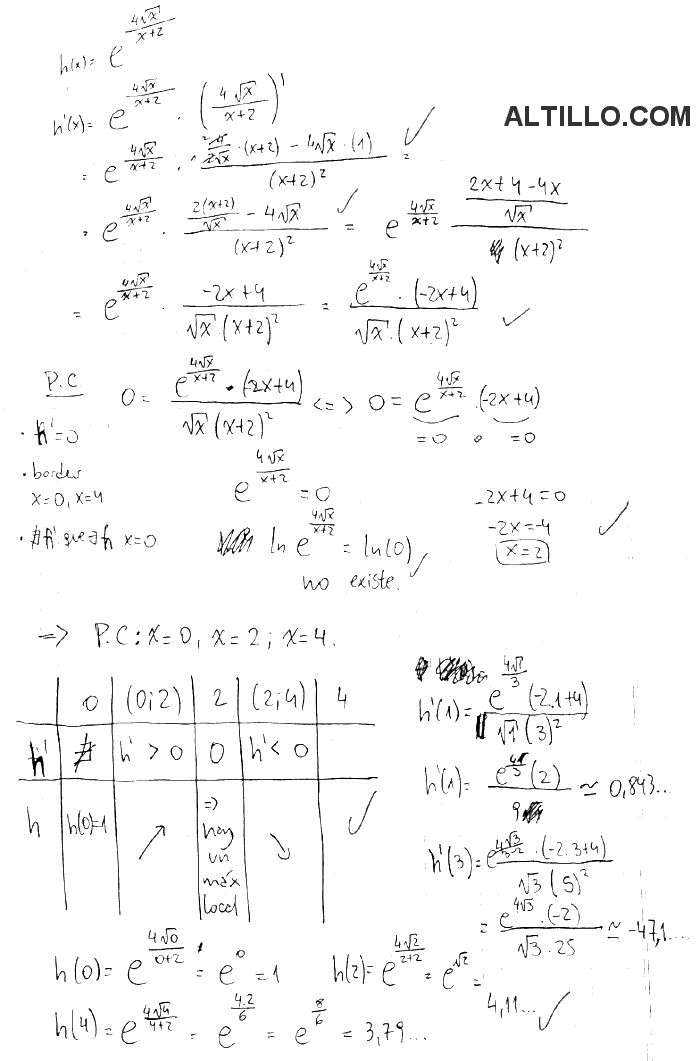 h(x) = e^(4√x/(x+2))
ALTILLO.COM
h'(x) = e^(4√x/(x+2)) · (4√x/(x+2))'
= e^(4√x/(x+2)) · (²4/2√x · (x+2) − 4√x · (1))/(x+2)² = ✓
= e^(4√x/(x+2)) · (2(x+2)/√x − 4√x)/(x+2)² ✓ = e^(4√x/(x+2)) ((2x+4−4x)/√x)/(x+2)²
= e^(4√x/(x+2)) · (−2x+4)/(√x·(x+2)²) = (e^(4√x/(x+2)) · (−2x+4))/(√x·(x+2)²) ✓
P.C 0 = (e^(4√x/(x+2)) · (−2x+4))/(√x (x+2)²) <=> 0 = e^(4√x/(x+2)) · (−2x+4)
· h'=0 =0 o =0
· bordes e^(4√x/(x+2)) = 0 −2x+4=0
x=0, x=4 −2x=−4 ✓
· ∄h' que ∃h x=0 ln e^(4√x/(x+2)) = ln(0) ✓ x=2
no existe.
=> P.C: x=0, x=2; x=4.
0 (0;2) 2 (2;4) 4
h' ∄ h'>0 0 h'<0
h h(0)=1 ↗ => hay un máx local ↘ ✓
h'(1) = (e^(4√1/3) (−2.1+4))/(√1 (3)²)
h'(1) = (e^(4√1/3) (2))/9 ≃ 0,843...
h'(3) = (e^(4√3/3+2) · (−2.3+4))/(√3 (5)²)
= (e^(4√3) · (−2))/(√3 · 25) ≃ −47,1...
h(0) = e^(4√0/(0+2)) = e^0 = 1 h(2) = e^(4√2/(2+2)) = e^√2 =
4,11... ✓
h(4) = e^(4√4/(4+2)) = e^(4.2/6) = e^(8/6) = 3,79...